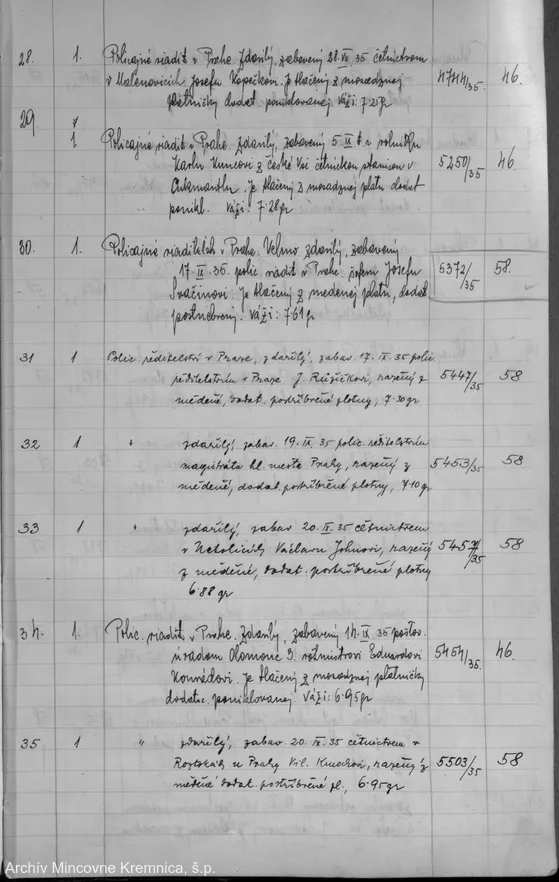 28. 1. Policajné riadit. v Prahe. Zdarilý, zabavený 28.VI 35 četníctvom
v Malenoviciach Josefu Kopečkovi. Je tlačený z mosadznej 4744/35. 46.
platničky dodat. poniklovanej. Váži: 7·25gr
29. 1. Policajné riadit. v Prahe. Zdarilý, zabavený 5.IX t.r. rolníku
Karlu Kuncovi z České četníckou stanicou v 5250/35 46
Je tlačený z mosadznej platni dodat.
ponikl. Váži: 7·28gr
30. 1. Policajné riaditelstv. v Prahe. Velmo zdarilý, zabavený
17.IX.35. polic. riadit. v Prahe. Josefu 5372/35 58.
Svačinovi. Je tlačený z medenej platni, dodat.
postriebrený. Váži: 7·61 gr
31 1 Polic. ředitelství v Praze, zdařilý, zabav. 17. IX. 35 polic.
ředitelstvím v Praze J. Růžičkovi, ražený z 5447/35 58
měděné, dodat. postříbřené plotny, 7·30gr
32 1 " zdařilý, zabav. 19. IX. 35 polic. ředitelstvím
magistrátu hl. města Prahy, ražený z 5453/35 58
měděné, dodat. postříbřené plotny, 7·10 gr
33 1 " zdařilý, zabav. 20. IX. 35 četnictvem
v Netolicích Václavu Johnovi, ražený 58
z měděné, dodat. postříbřené plotny
6·88 gr
34. 1. Polic. riadit. v Prahe. Zdarilý, zabavený 14.IX 35 poštov.
úradom Olomouc 3. rotmistrovi Eduardovi 5454/35. 46.
Konrádovi. Je tlačený z mosadznej platničky
dodatoč. poniklovanej. Váži: 6·95gr
35 1 " zdařilý, zabav. 20. IX. 35 četnictvem v
Roztokách u Prahy Vil. ražený z 5503/35 58
měděné dodat. postříbřené pl., 6·95gr
Archív Mincovne Kremnica, š.p.